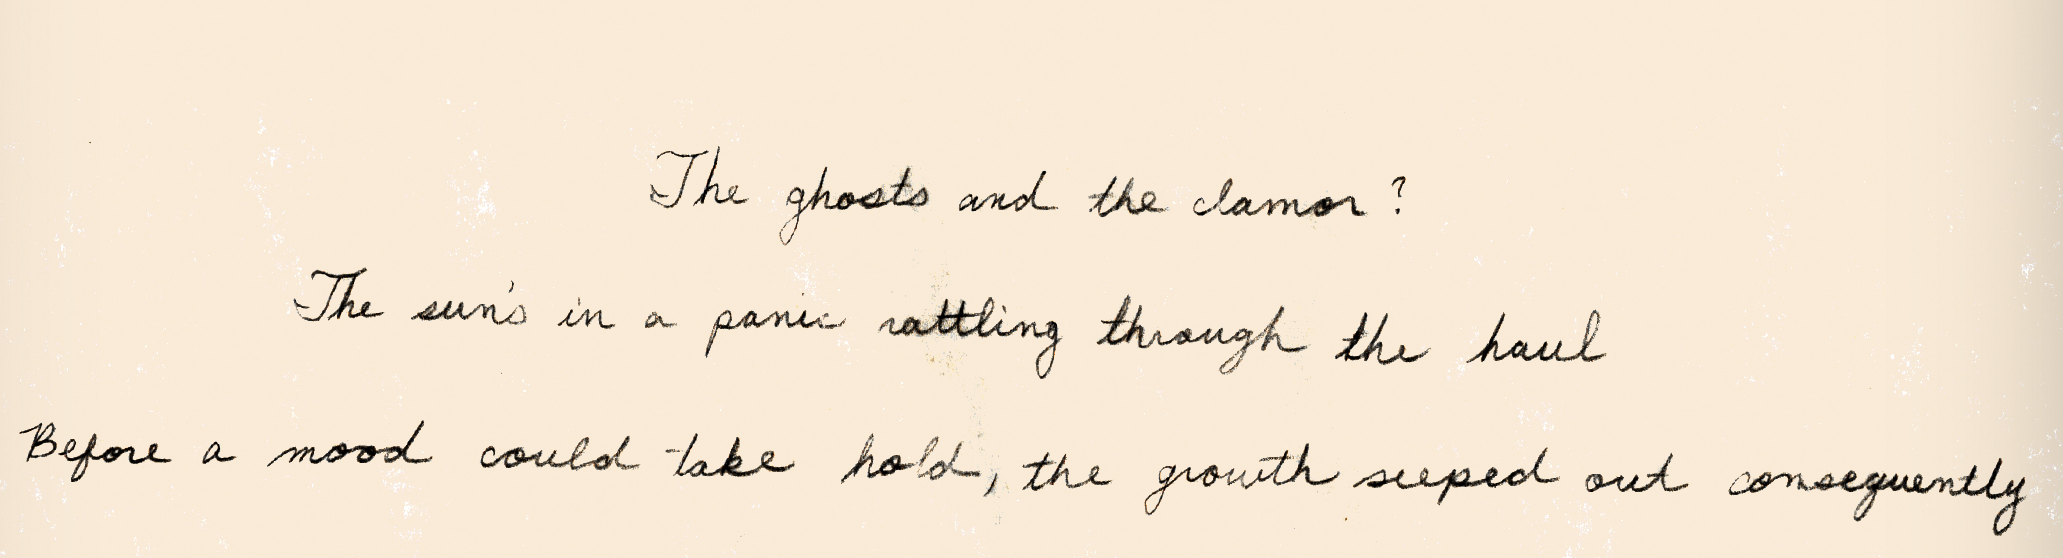 The ghosts and the clamor?
The sun's in a panic rattling through the haul
Before a mood could take hold, the growth seeped out consequently